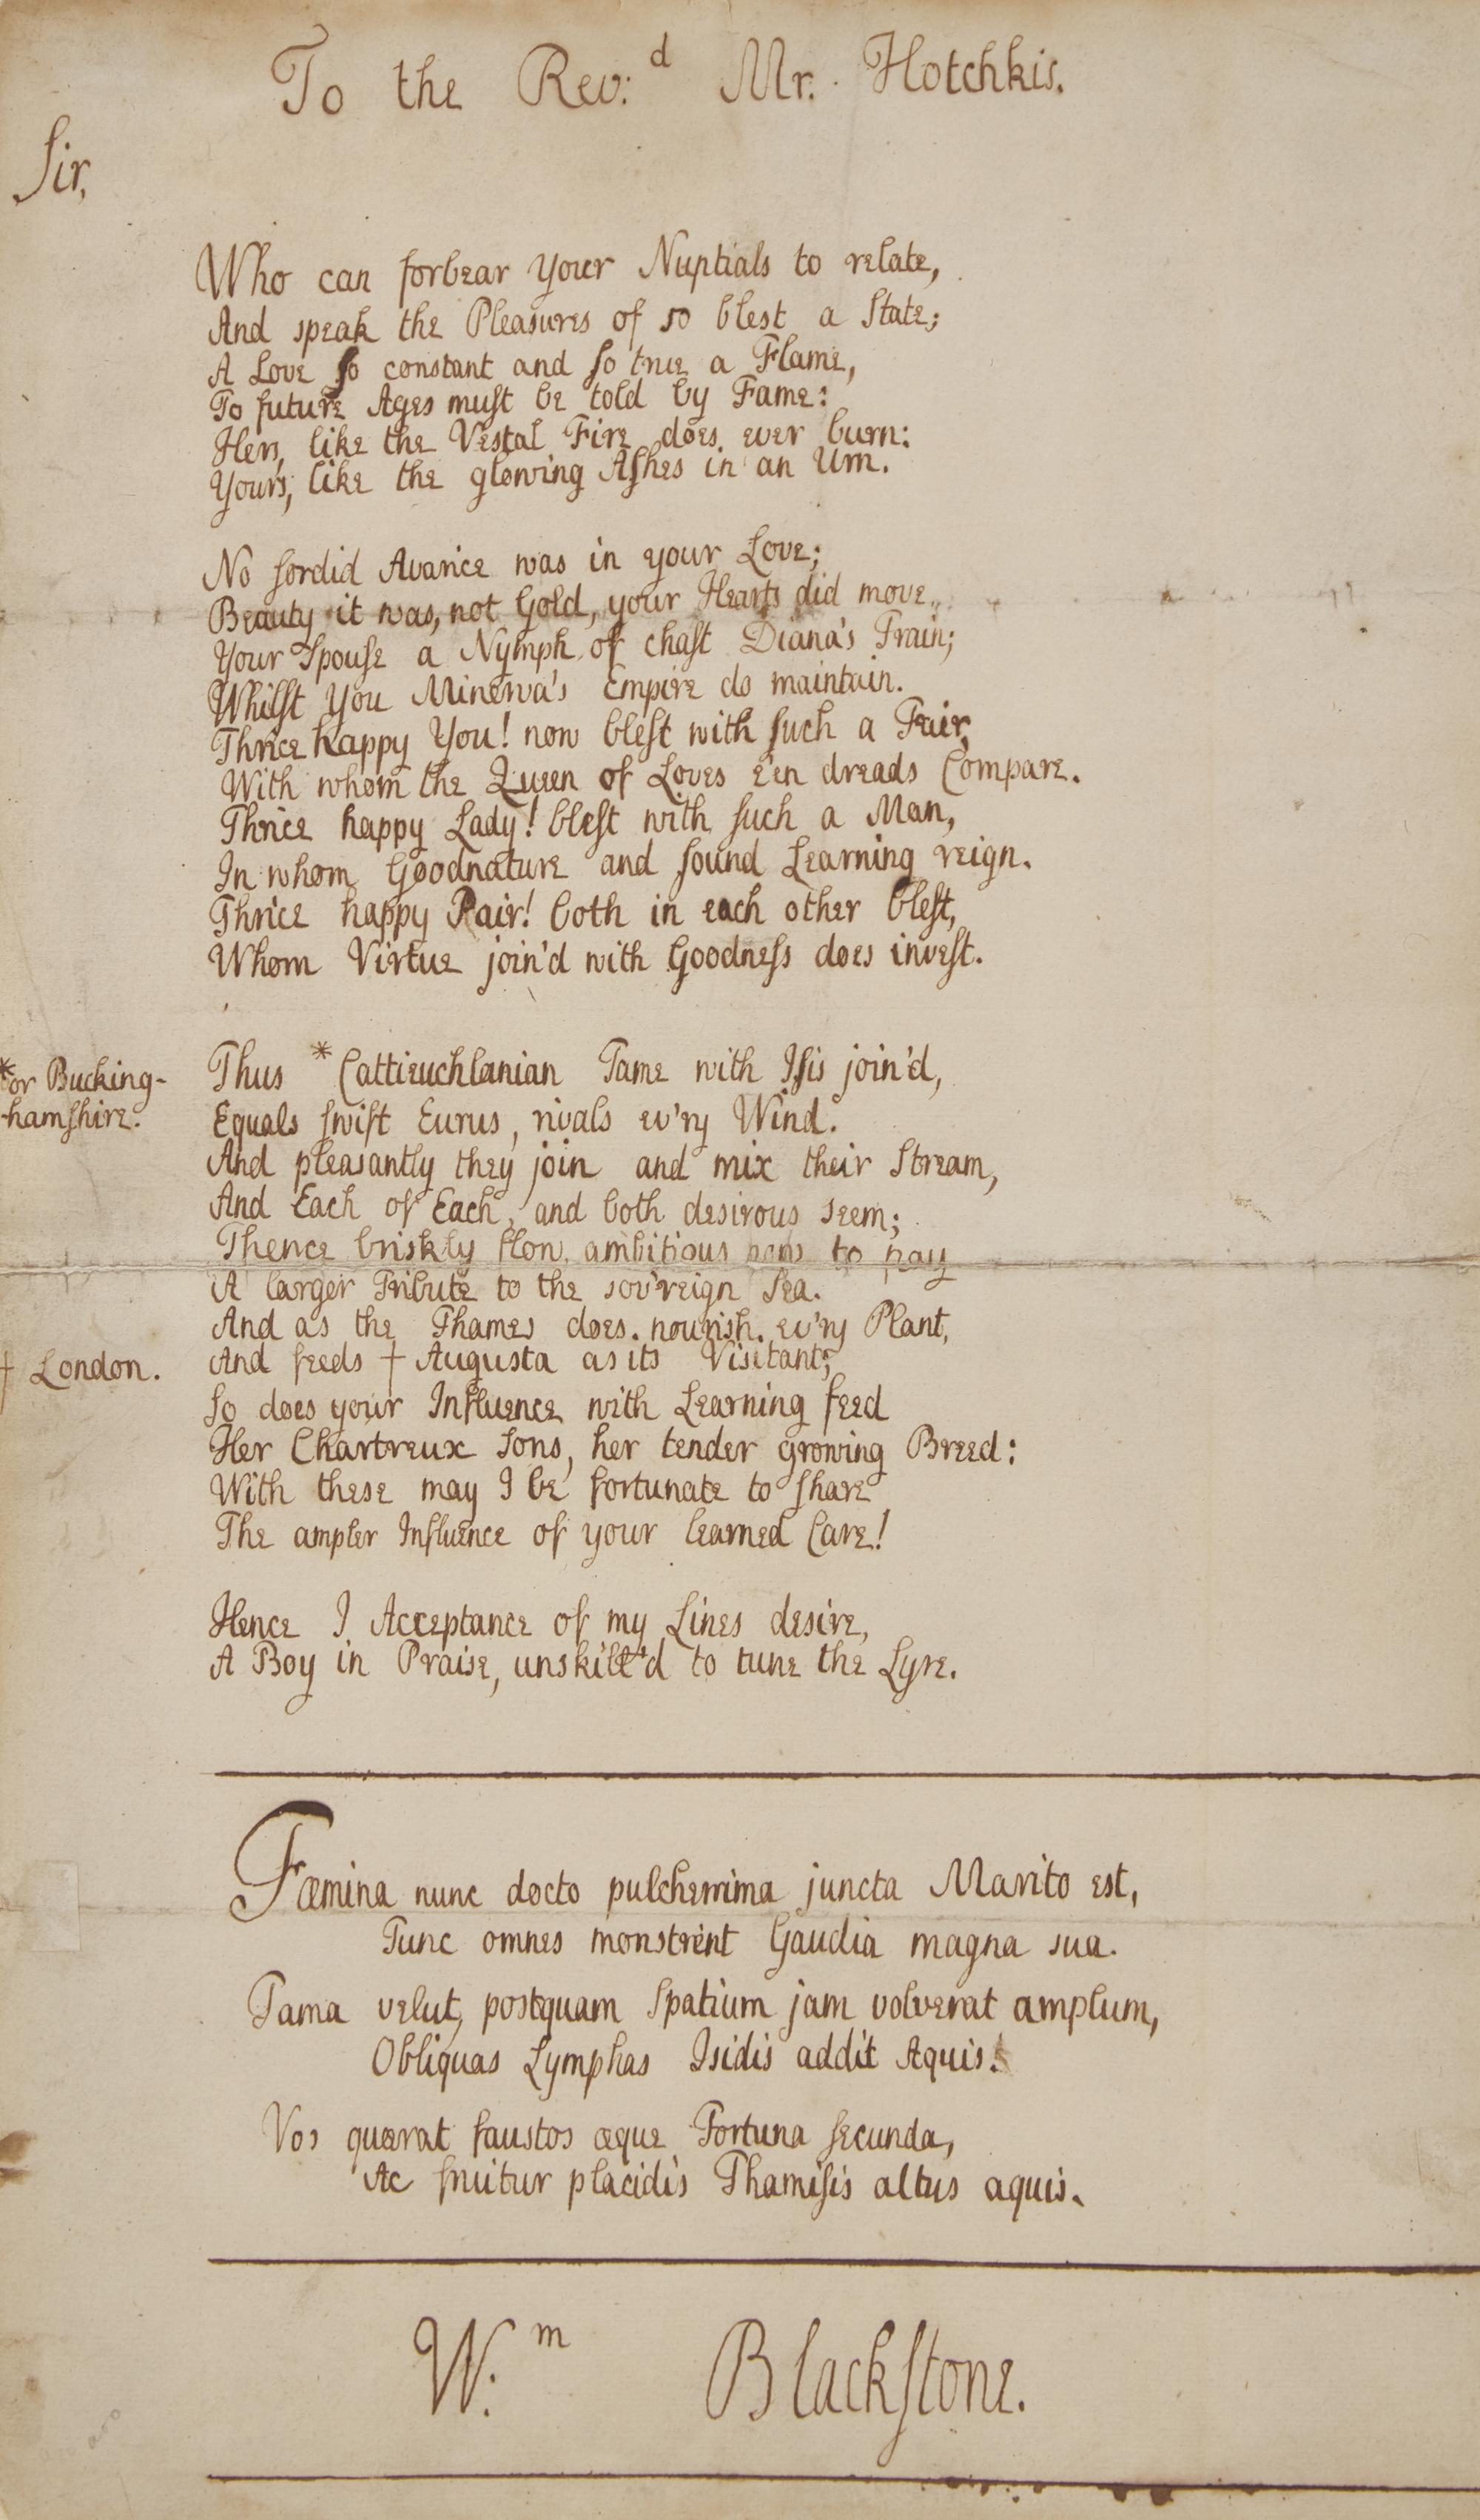 To the Rev:d Mr. Hotchkis.
Sir,
Who can forbear your Nuptials to relate,
And speak the Pleasures of so blest a State;
A Love so constant and so true a Flame,
To future Ages must be told by Fame:
Hers, like the Vestal Fire does ever burn:
Yours, like the glowing Ashes in an Urn.
No sordid Avarice was in your Love;
Beauty it was, not Gold, your Hearts did move.
Your Spouse a Nymph of chast Diana's Train;
Whilst You Minerva's Empire do maintain.
Thrice happy You! now blest with such a Fair,
With whom the Queen of Loves e'en dreads Compare.
Thrice happy Lady! blest with such a Man,
In whom Goodnature and sound Learning reign.
Thrice happy Pair! both in each other blest,
Whom Virtue join'd with Goodness does invest.
Thus * Cattieuchlanian Tame with Isis join'd,
* or Bucking-
-hamshire.
Equals swift Eurus, rivals ev'ry Wind.
And pleasantly they join and mix their Stream,
And Each of Each, and both desirous seem;
Thence briskly flow, ambitious now to pay
A larger Tribute to the sov'reign Sea.
And as the Thames does nourish ev'ry Plant,
And feeds † Augusta as its Visitant;
† London.
So does your Influence with Learning feed
Her Chartreux Sons, her tender growing Breed:
With these may I be fortunate to share
The ampler Influence of your learned Care!
Hence I Acceptance of my Lines desire,
A Boy in Praise, unskill'd to tune the Lyre.
Fæmina nunc docto pulcherrima juncta Marito est,
Tunc omnes monstrent Gaudia magna sua.
Tama velut, postquam Spatium jam volverat amplum,
Obliquas Lymphas Isidis addit Aquis.
Vos quærat faustos æque Fortuna secunda,
Ac fruitur placidis Thamisis altus aquis.
W:m Blackstone.